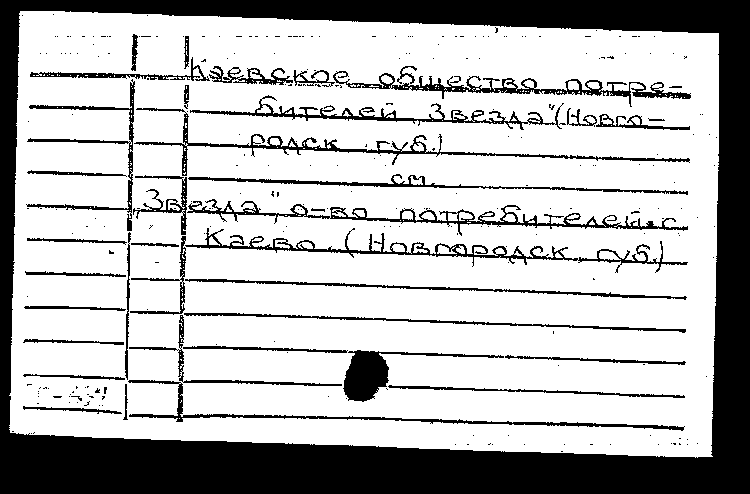 Каевское общество потре-
бителей „Звезда" (Новго-
родск. губ.)
см.
„Звезда", о-во потребителей. с.
Каево. (Новгородск. губ.)